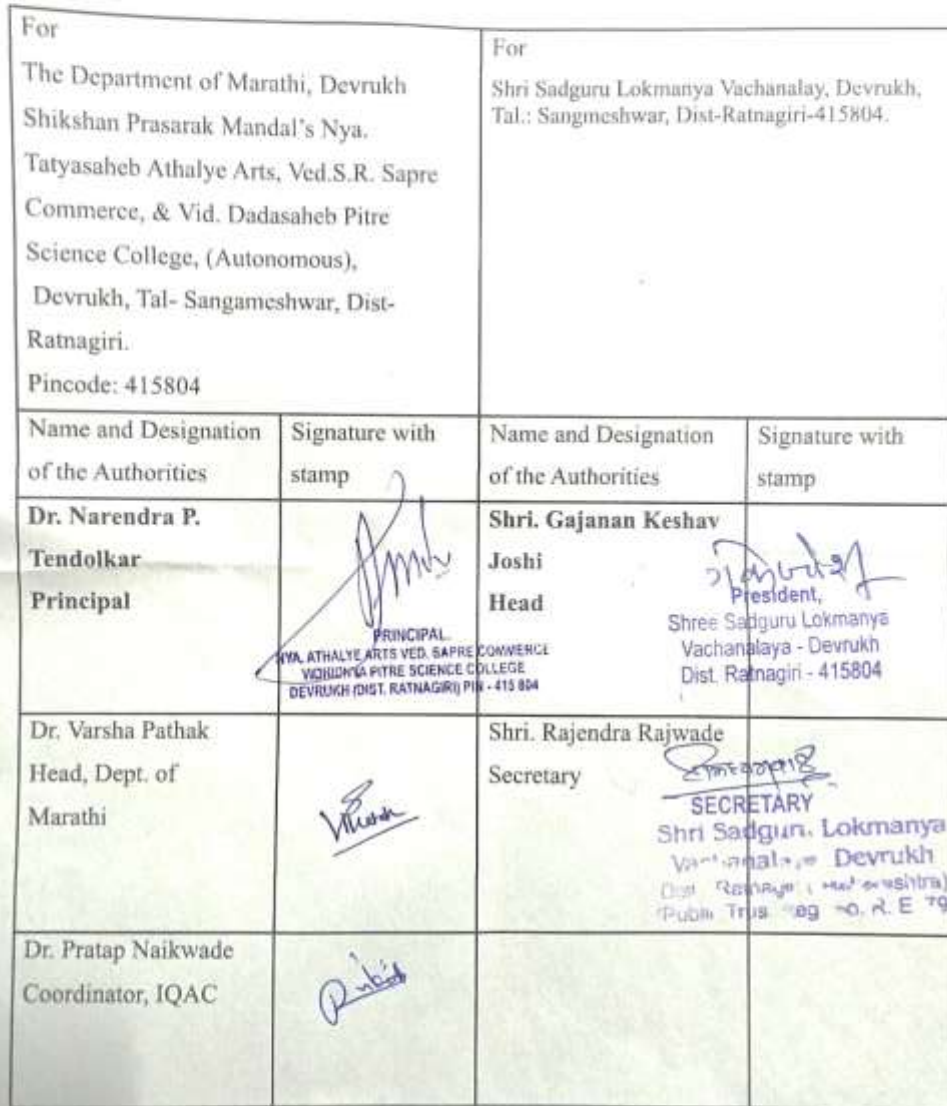 For
The Department of Marathi, Devrukh
Shikshan Prasarak Mandal's Nya.
Tatyasaheb Athalye Arts, Ved.S.R. Sapre
Commerce, & Vid. Dadasaheb Pitre
Science College, (Autonomous),
Devrukh, Tal- Sangameshwar, Dist-
Ratnagiri.
Pincode: 415804
For
Shri Sadguru Lokmanya Vachanalay, Devrukh,
Tal.: Sangmeshwar, Dist-Ratnagiri-415804.
Name and Designation
of the Authorities
Signature with
stamp
Name and Designation
of the Authorities
Signature with
stamp
Dr. Narendra P.
Tendolkar
Principal
PRINCIPAL
NYA. ATHALYE ARTS VED. SAPRE COMMERCE
PITRE SCIENCE COLLEGE
DEVRUKH (DIST. RATNAGIRI) PIN - 415 804
Shri. Gajanan Keshav
Joshi
Head
President,
Shree Sadguru Lokmanya
Vachanalaya - Devrukh
Dist. Ratnagiri - 415804
Dr. Varsha Pathak
Head, Dept. of
Marathi
Shri. Rajendra Rajwade
Secretary
SECRETARY
Shri Sadguru Lokmanya
Devrukh
Dr. Pratap Naikwade
Coordinator, IQAC